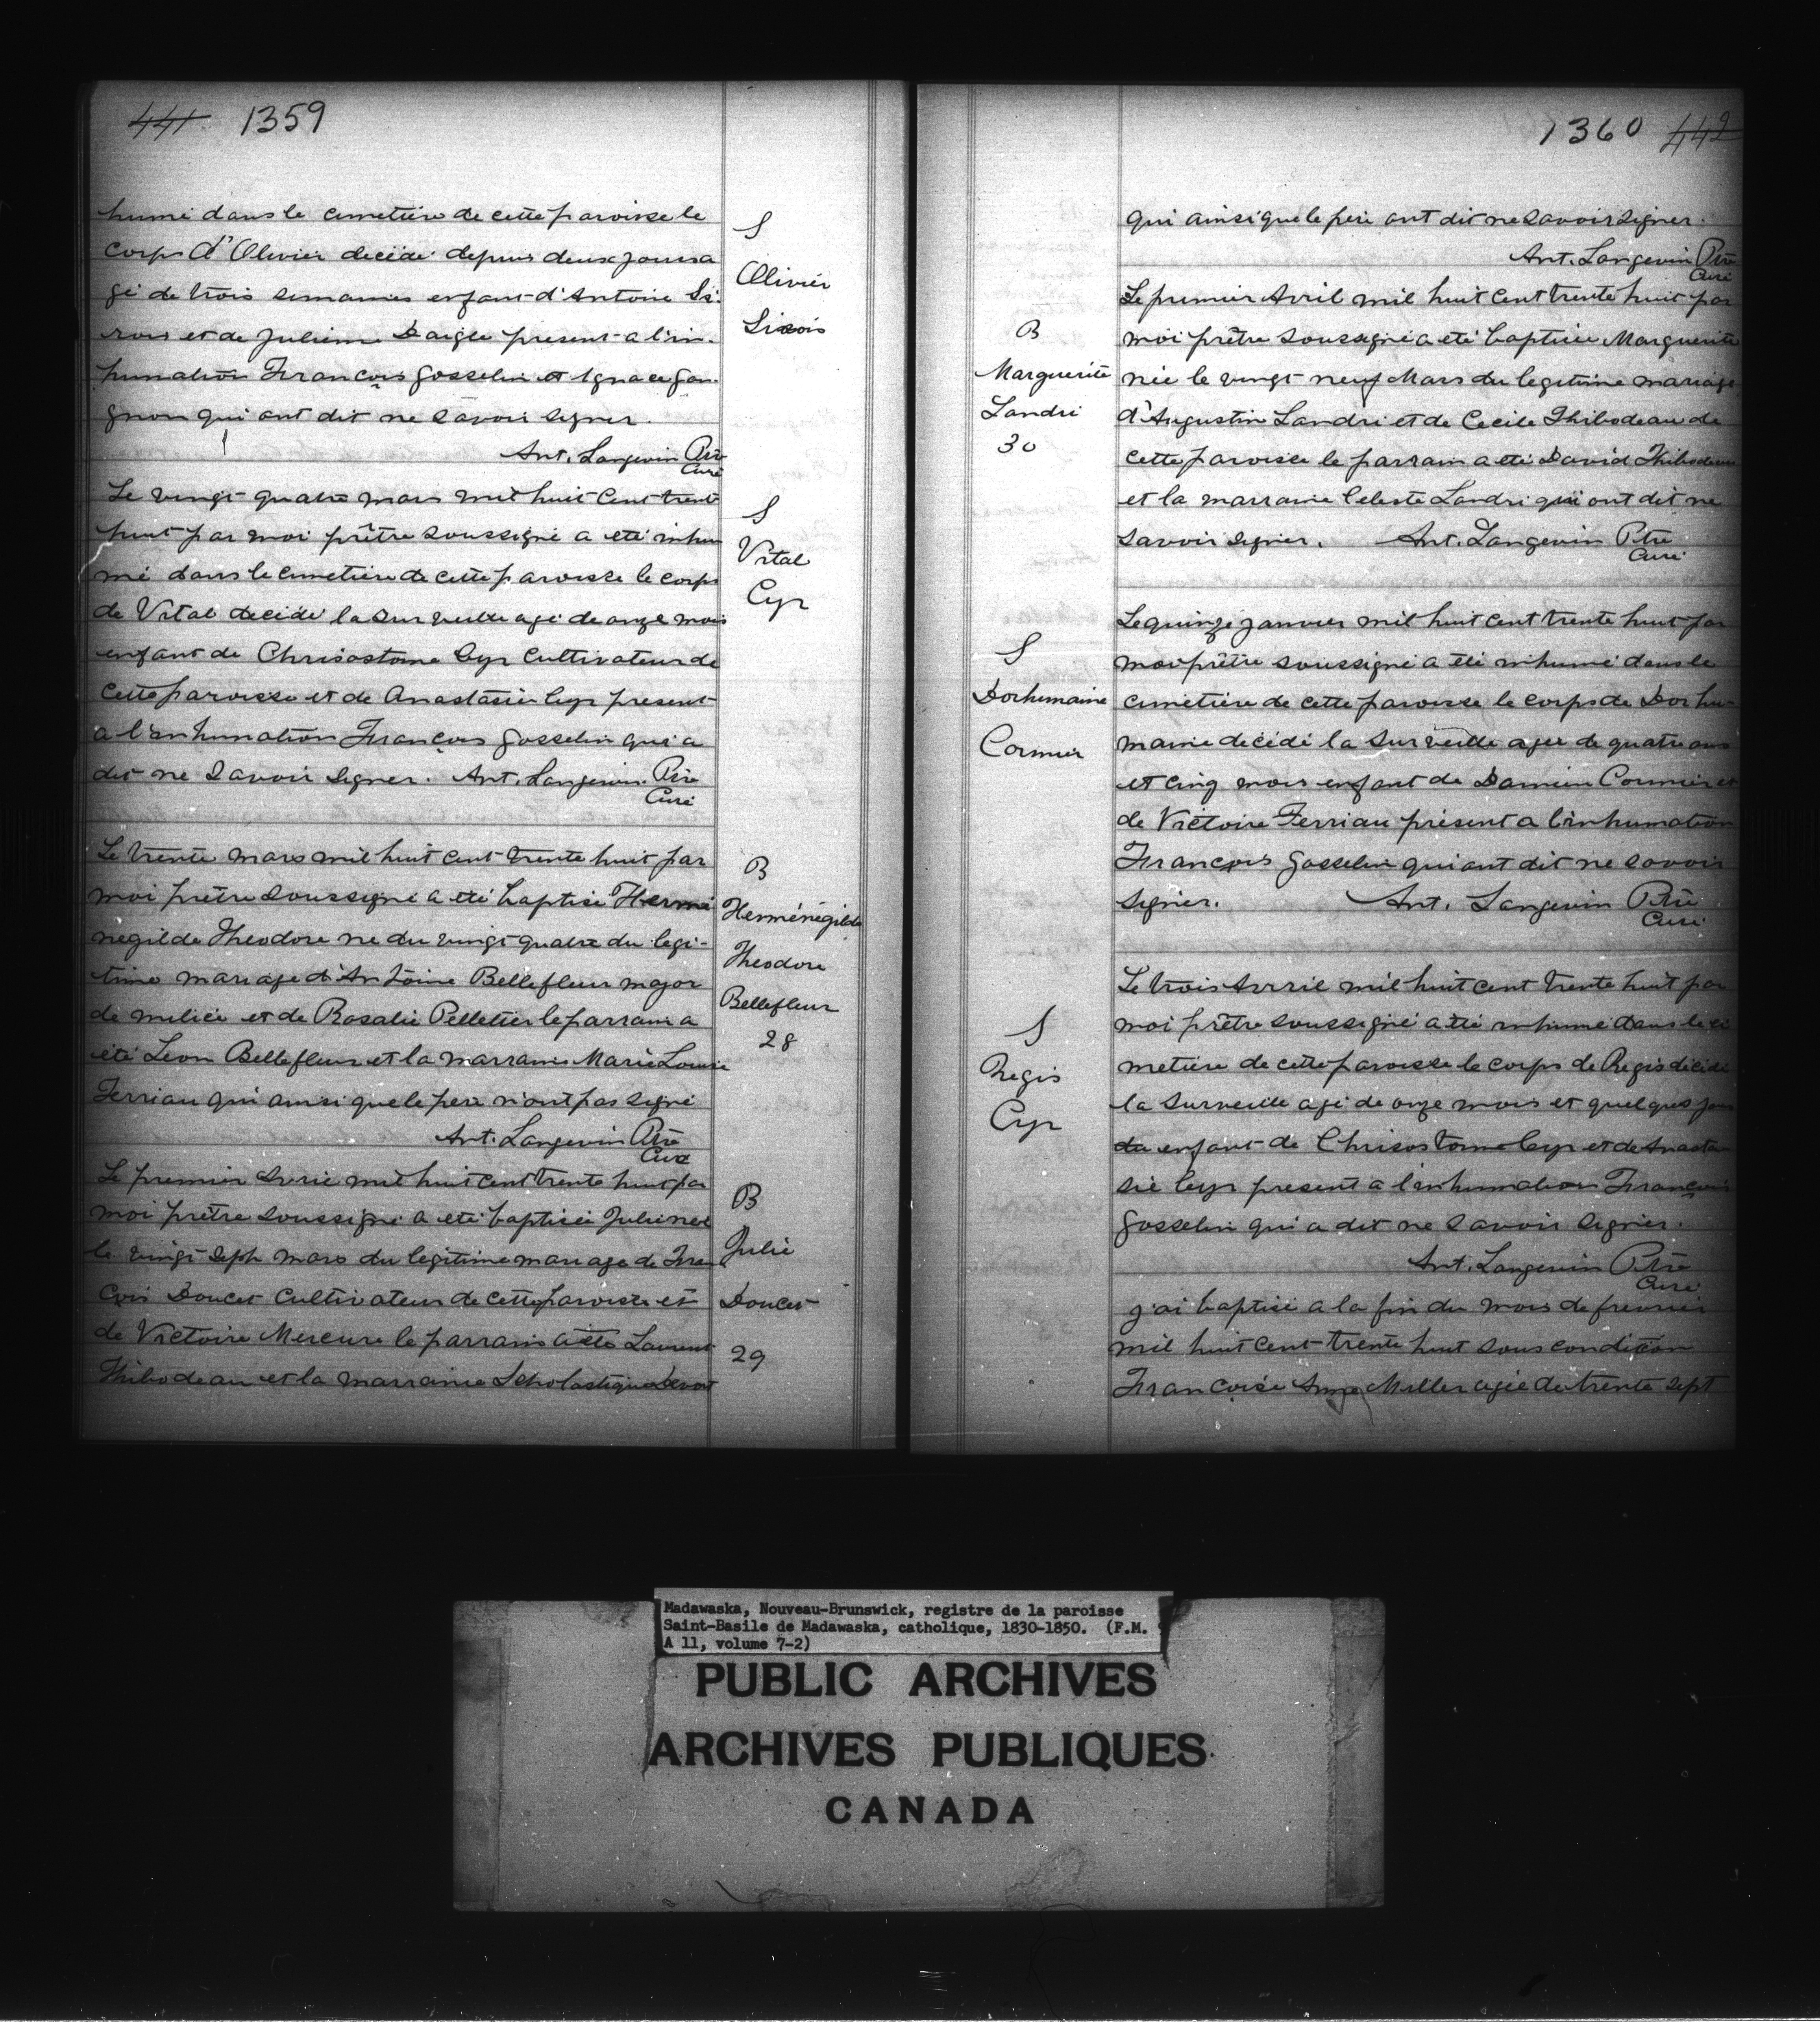 441 1359
humé dans le cimetière de cette paroisse le
corps d'Olivier décédé depuis deux jours a
gé de trois semaines enfant d'Antoine Si-
rois et de Julienne Daigle présent a l'in-
humation François Gosselin et Ignace Gan-
gnon qui ont dit ne savoir signer.
Ant. Langevin Ptre
Curé
S
Olivier
Sirois
Le vingt quatre mars mil huit cent trente
huit par moi prêtre soussigné a été inhu
mé dans le cimetière de cette paroisse le corps
de Vital décédé la surveille agé de onze mois
enfant de Chrisostome Cyr cultivateur de
cette paroisse et de Anastasie Cyr présent
a l'inhumation François Gosselin qui a
dit ne savoir signer. Ant. Langevin Ptre
Curé
S
Vital
Cyr
Le trente mars mil huit cent trente huit par
moi prêtre soussigné a été baptisé Hermé
negilde Theodore né du vingt quatre du legi-
time mariage d'Antoine Bellefleur major
de milice et de Rosalie Pelletier le parrain a
été Léon Bellefleur et la marraine Marie Louise
Terriau qui ainsi que le père n'ont pas signé
Ant. Langevin Ptre
Curé
B
Herménégilde
Theodore
Bellefleur
28
Le premier Avril mil huit cent trente huit par
moi prêtre soussigné a été baptisée Julie née
le vingt sept mars du legitime mariage de Fran
çois Doucet cultivateur de cette paroisse et
de Victoire Mercure le parrain a été Laurent
Thibodeau et la marraine Scholastique
B
Julie
Doucet
29
1360 442
qui ainsi que le père ont dit ne savoir signer.
Ant. Langevin Ptre
Curé
Le premier Avril mil huit cent trente huit par
moi prêtre soussigné a été baptisée Marguerite
née le vingt neuf Mars du legitime mariage
d'Augustin Landri et de Cecile Thibodeau de
cette paroisse le parrain a été David Thibodeau
et la marraine Celeste Landri qui ont dit ne
savoir signer. Ant. Langevin Ptre
Curé
B
Marguerite
Landri
30
Le quinze janvier mil huit cent trente huit par
moi prêtre soussigné a été inhumé dans le
cimetière de cette paroisse le corps de Dorhu-
maine décédé la surveille agée de quatre ans
et cinq mois enfant de Damien Cormier et
de Victoire Terriau présent a l'inhumation
François Gosselin qui ont dit ne savoir
signer. Ant. Langevin Ptre
Curé
S
Dorhumaine
Cormier
Le trois Avril mil huit cent trente huit par
moi prêtre soussigné a été inhumé dans le ci
metière de cette paroisse le corps de Regis décédé
la surveille agé de onze mois et quelques jours
du enfant de Chrisostome Cyr et de Anasta
sie Cyr présent a l'inhumation François
Gosselin qui a dit ne savoir signer.
Ant. Langevin Ptre
Curé
S
Regis
Cyr
j'ai baptisé a la fin du mois de fevrier
mil huit cent trente huit sous condition
Françoise Miller agée de trente sept
Madawaska, Nouveau-Brunswick, registre de la paroisse
Saint-Basile de Madawaska, catholique, 1830-1850. (F.M.
A 11, volume 7-2)
PUBLIC ARCHIVES
ARCHIVES PUBLIQUES
CANADA